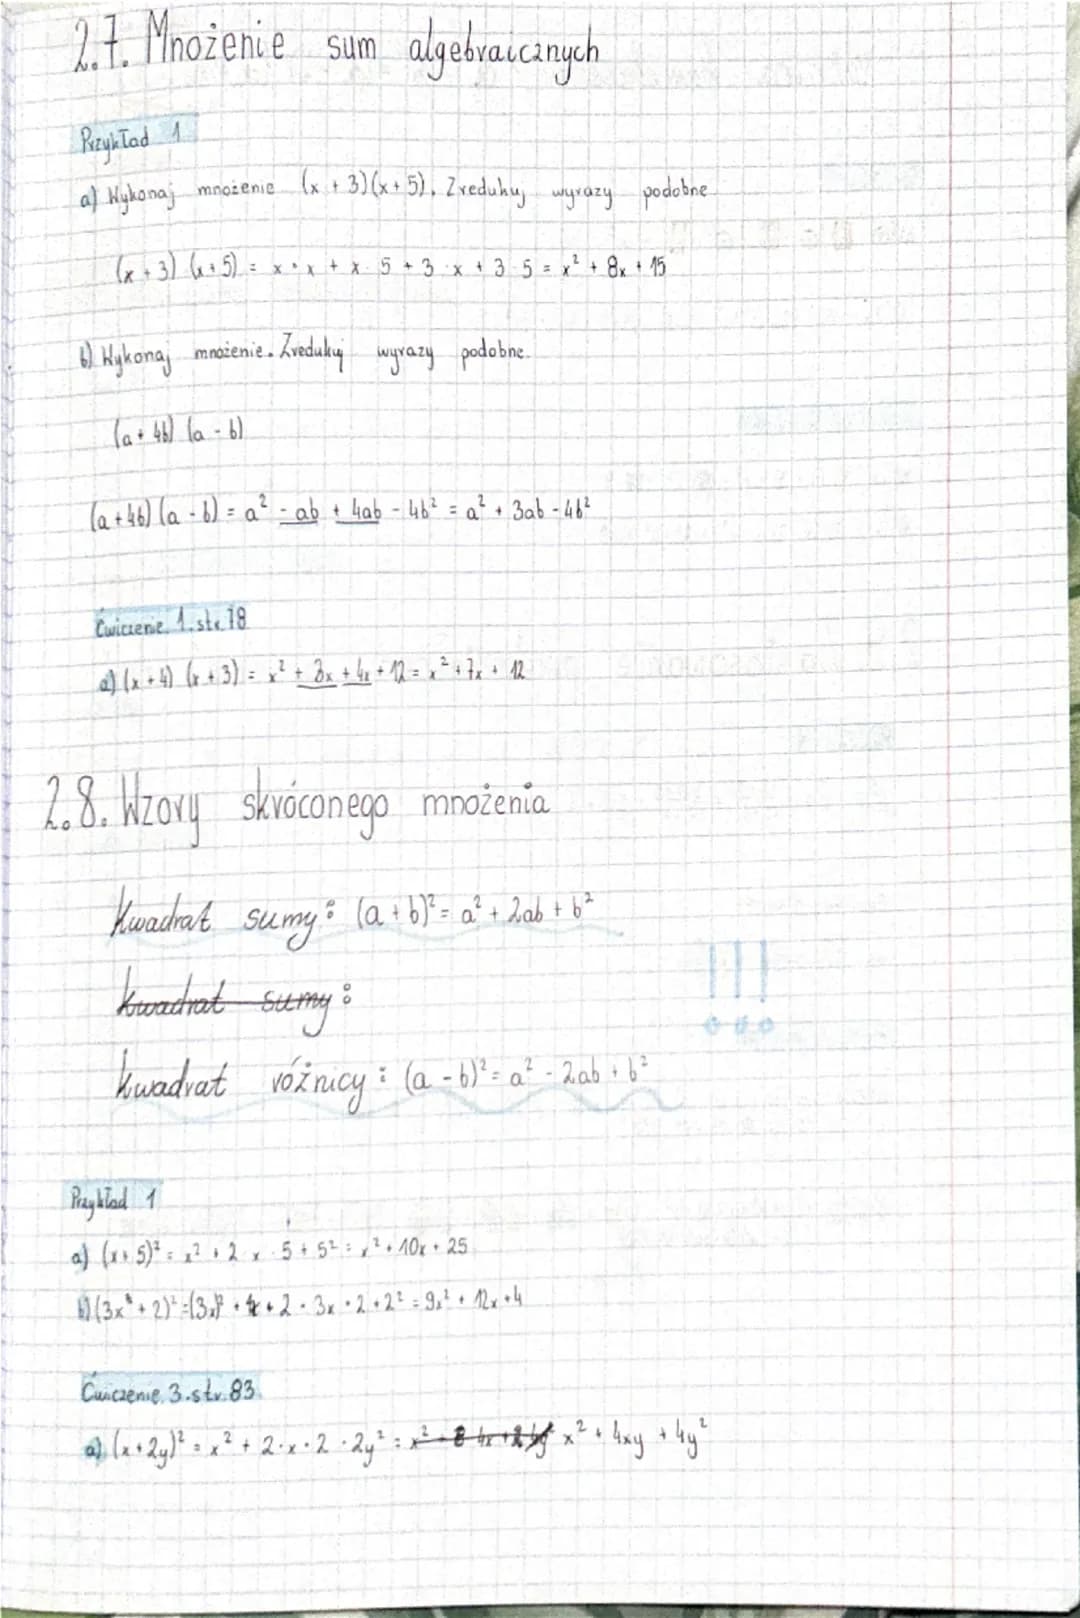 2.7. Mnożenie sum algebraicznych
Przykład 1
a) Wykonaj mnożenie (x + 3)(x + 5). Zredukuj wyrazy podobne.
(x + 3) (x + 5) = x · x + x · 5 + 3 · x + 3 · 5 = x² + 8x + 15
b) Wykonaj mnożenie. Zredukuj wyrazy podobne.
(a + 4b) (a - b)
(a + 4b) (a - b) = a² - ab + 4ab - 4b² = a² + 3ab - 4b²
Ćwiczenie 1. str. 78
a) (x + 4) (x + 3) = x² + 3x + 4x + 12 = x² + 7x + 12
2.8. Wzory skróconego mnożenia
Kwadrat sumy: (a + b)² = a² + 2ab + b²
kwadrat sumy:
!!!
kwadrat różnicy: (a - b)² = a² - 2ab + b²
Przykład 1
a) (x + 5)² = x² + 2 · x · 5 + 5² = x² + 10x + 25
b) (3x + 2)² = (3x)² + 2 · 3x · 2 + 2² = 9x² + 12x + 4
Ćwiczenie 3. str. 83
a) (x + 2y)² = x² + 2 · x · 2 · 2y² = x² + 4xy + 4y²